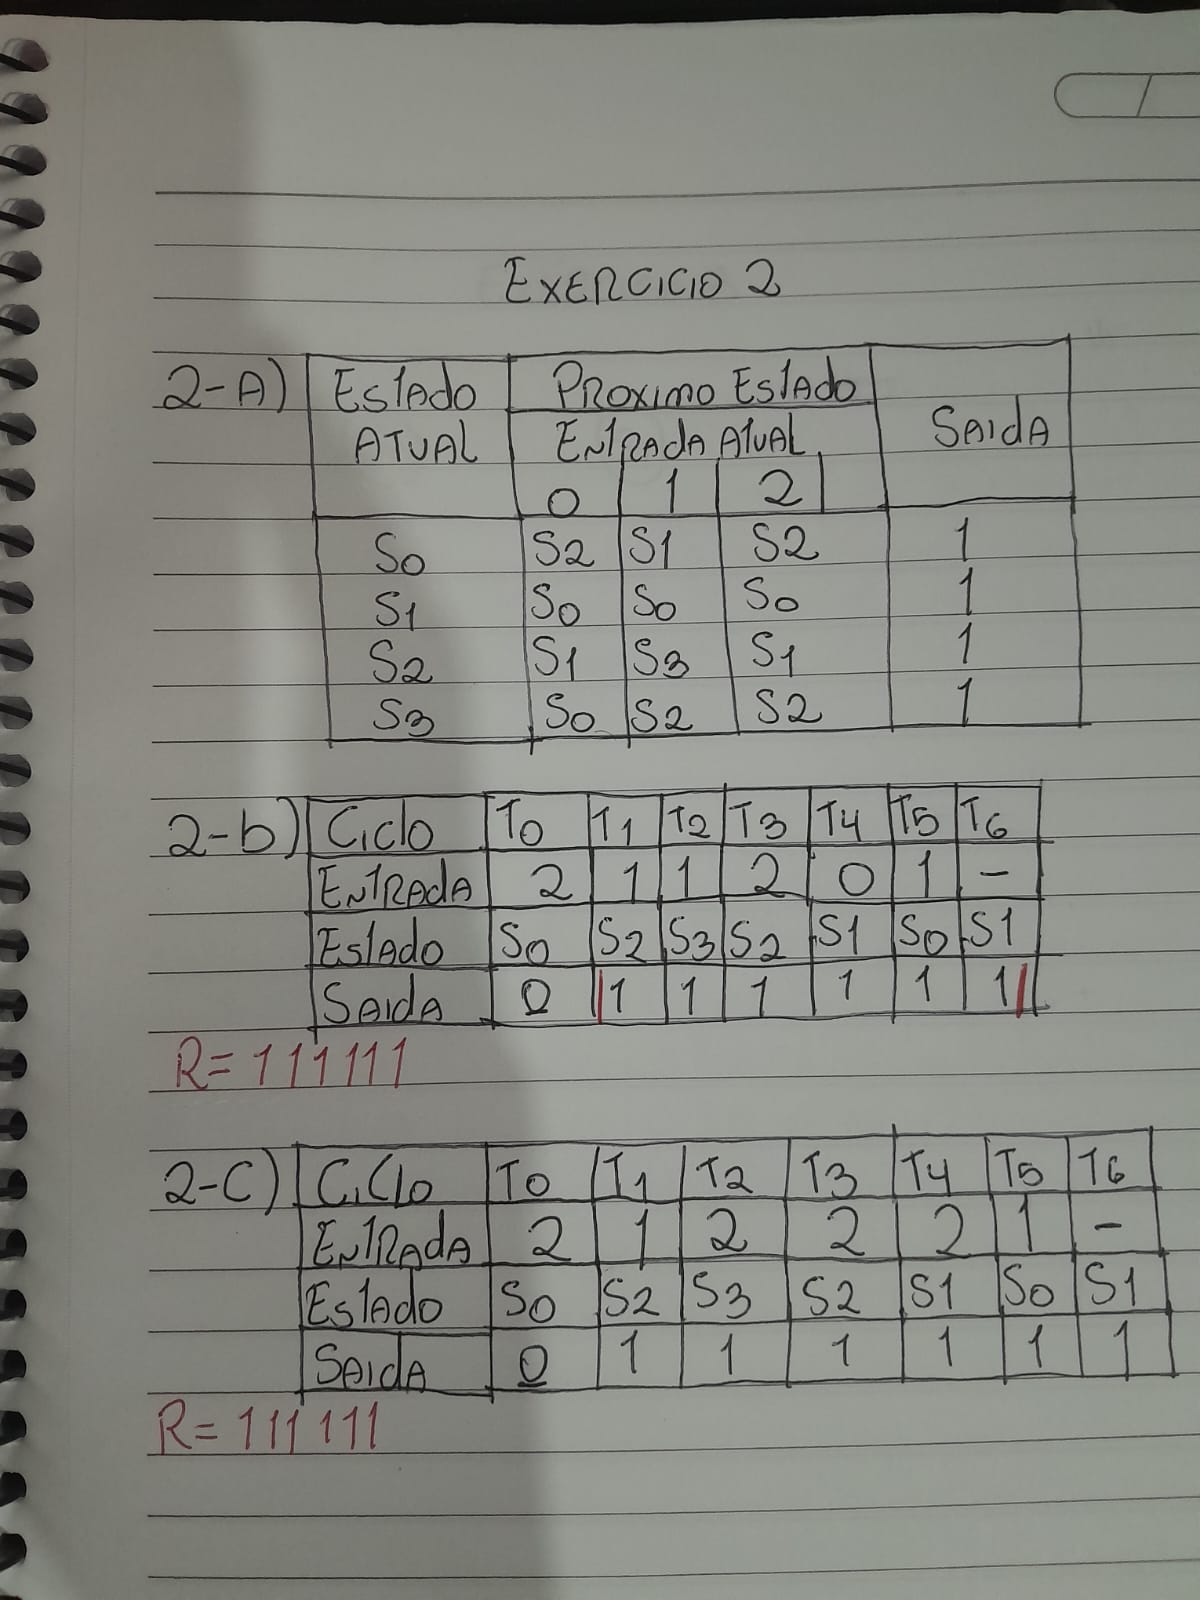 EXERCICIO 2
2-A) EStAdO PROXIMO EStAdO
ATUAL ENtRAdA AtUAL SAIdA
0 1 2
S0 S2 S1 S2 1
S1 S0 S0 S0 1
S2 S1 S3 S1 1
S3 S0 S2 S2 1
2-b) CiClO T0 T1 T2 T3 T4 T5 T6
ENtRAdA 2 1 1 2 0 1 -
EStAdO S0 S2 S3 S2 S1 S0 S1
SAIdA 0 1 1 1 1 1 1
R= 111111
2-C) CiClO T0 T1 T2 T3 T4 T5 T6
ENtRAdA 2 1 2 2 2 1 -
EStAdO S0 S2 S3 S2 S1 S0 S1
SAIdA 0 1 1 1 1 1 1
R= 111111